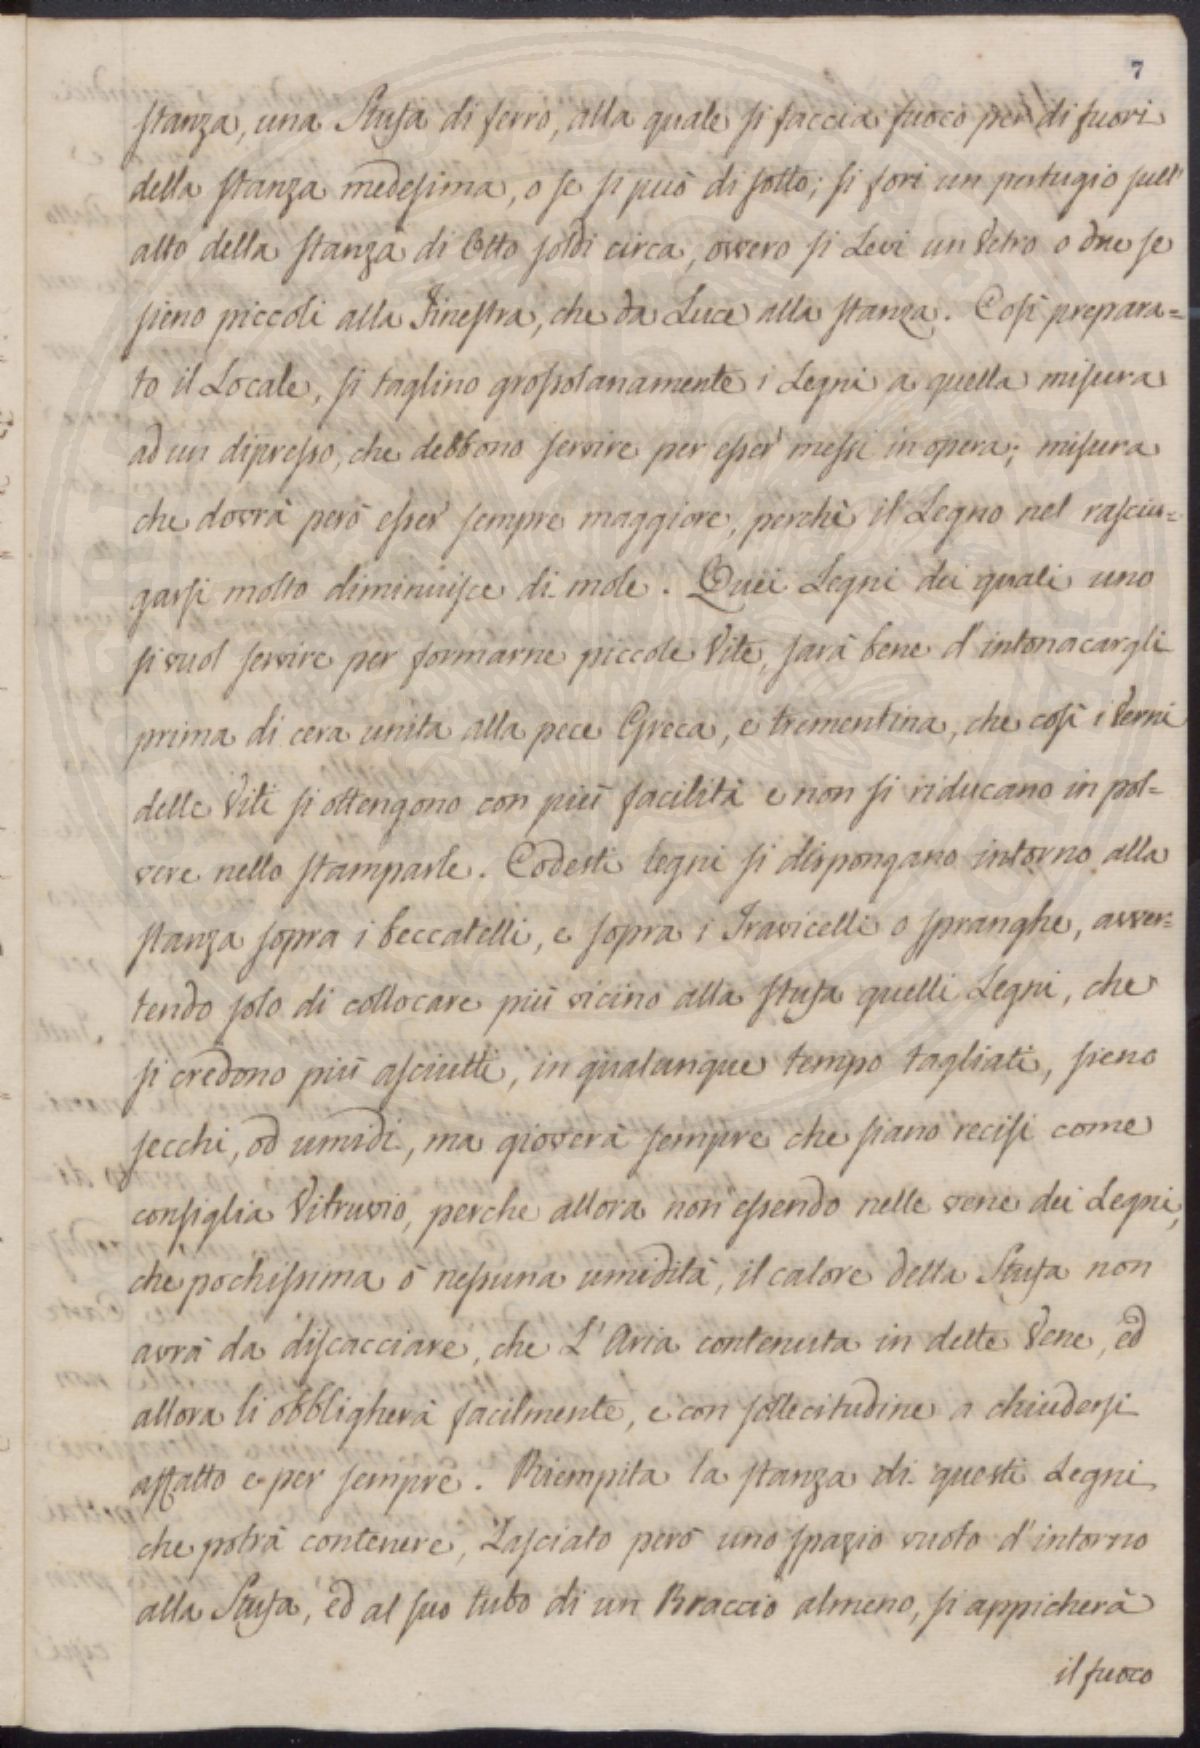 7
stanza, una Stufa di ferro, alla quale si faccia fuoco per di fuori
della stanza medesima, o se si può di sotto; si fori un pertugio sull'
alto della stanza di Otto soldi circa, ovvero si Levi un Vetro o due se
sieno piccoli alla Finestra, che da Luce alla stanza. Così prepara=
to il Locale, si taglino grossolanamente i Legni a quella misura
ad un dipresso, che debbono servire per esser messi in opera; misura
che dovrà però esser sempre maggiore, perchè il Legno nel rasciu=
garsi molto diminuisce di mole. Quei Legni dei quali uno
si vuol servire per formarne piccole Vite, sarà bene d'intonacargli
prima di cera unita alla pece Greca, e trementina, che così i Vermi
delle Viti si ottengono con più facilità e non si riducano in pol=
vere nello stamparle. Codesti legni si dispongano intorno alla
stanza sopra i beccatelli, e sopra i Travicelli o spranghe, avver=
tendo solo di collocare più vicino alla stufa quelli Legni, che
si credono più asciutti, in qualunque tempo tagliati, sieno
secchi, od umidi, ma gioverà sempre che siano recisi come
consiglia Vitruvio, perche allora non essendo nelle vene dei Legni,
che pochissima ò nessuna umidità, il calore della Stufa non
avrà da discacciare, che L'Aria contenuta in dette Vene, ed
allora li obbligherà facilmente, e con sollecitudine a chiudersi
affatto e per sempre. Riempita la stanza di questi Legni
che potrà contenere, Lasciato però uno spazio vuoto d'intorno
alla Stufa, ed al suo tubo di un Braccio almeno, si appicherà
il fuoco